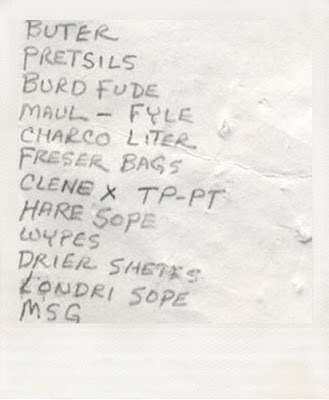 BUTER
PRETSILS
BURD FUDE
MAUL – FYLE
CHARCO LITER
FRESER BAGS
CLENE X TP-PT
HARE SOPE
WYPES
DRIER SHETES
LONDRI SOPE
MSG